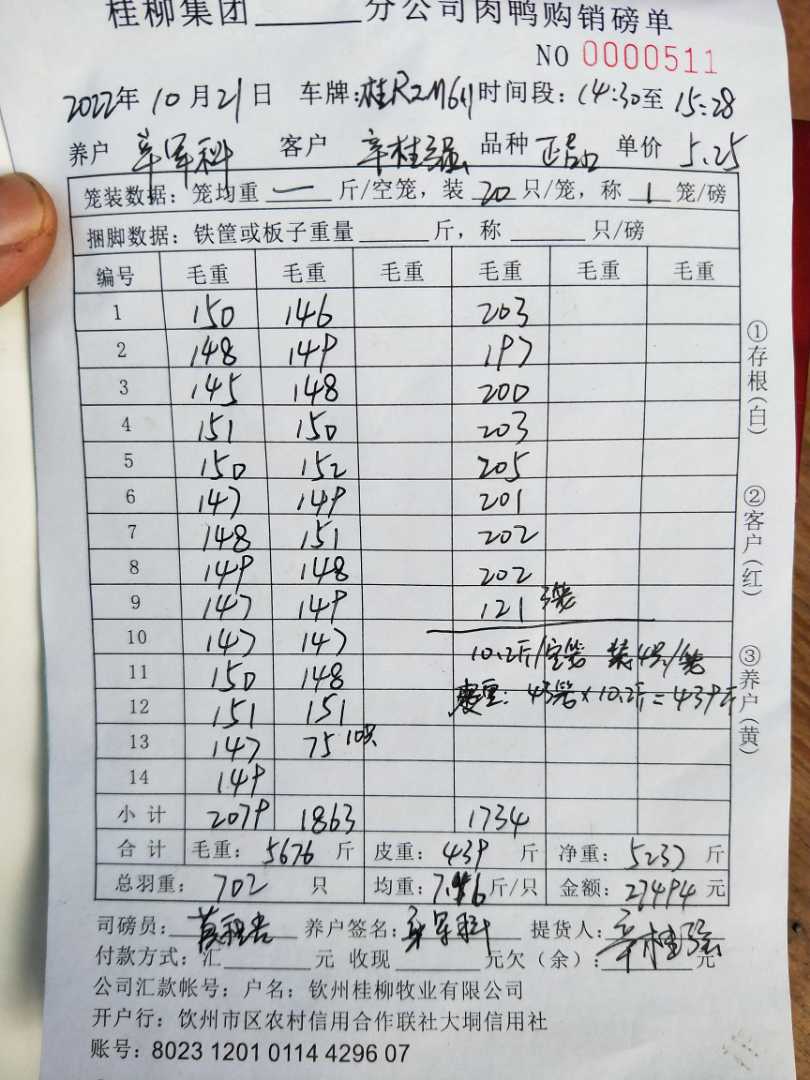 桂柳集团______分公司肉鸭购销磅单
NO 0000511
2022年10月21日 车牌:桂R2M611 时间段:14:30至15:28
养户 辛军科 客户 辛桂强 品种 正品 单价 5.25
笼装数据:笼均重 一 斤/空笼,装 20 只/笼,称 1 笼/磅
捆脚数据:铁筐或板子重量______斤,称______只/磅
编号 毛重 毛重 毛重 毛重 毛重 毛重
1 150 146 203
2 148 149 197
3 145 148 200
4 151 150 203
5 150 152 205
6 147 149 201
7 148 151 202
8 149 148 202
9 147 149 121 3笼
10 147 147
10.2斤/空笼 装 /笼
11 150 148
12 151 151
重:43笼×10.2斤=439斤
13 147 75 10只
14 149
小计 2079 1863 1734
合计 毛重:5676斤 皮重:439斤 净重:5237斤
总羽重:702只 均重:7.46斤/只 金额:27494元
司磅员: 养户签名:辛军科 提货人:辛桂强
付款方式:汇______元 收现______元欠(余):______元
公司汇款帐号:户名:钦州桂柳牧业有限公司
开户行:钦州市区农村信用合作联社大垌信用社
账号:8023 1201 0114 4296 07
①存根(白)
②客户(红)
③养户(黄)